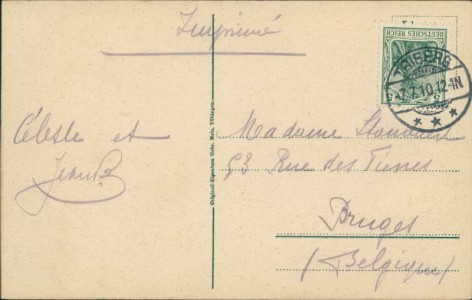 Imprimé
DEUTSCHES REICH
TRIBERG
7.7.10.12-1N
* * *
Céleste et
Jean B
Original-Eigentum Gebr. Metz, Tübingen
Madame
93 Rue des
Bruges
(Belgique)